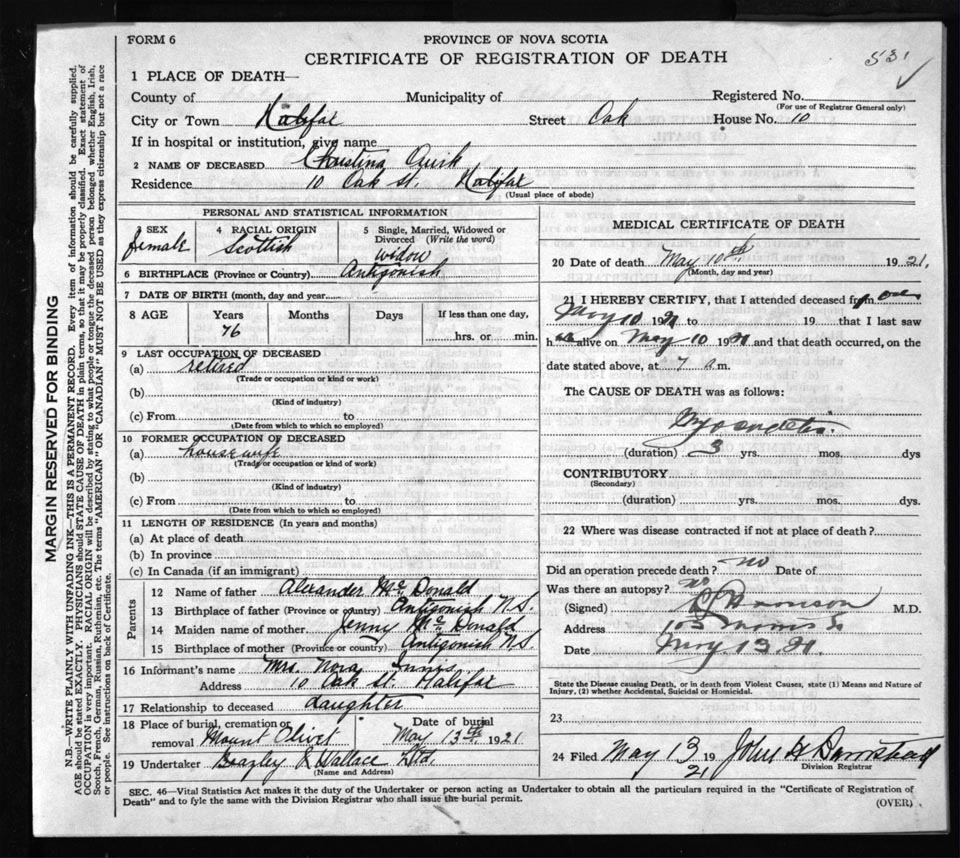 FORM 6
PROVINCE OF NOVA SCOTIA
CERTIFICATE OF REGISTRATION OF DEATH
531
1 PLACE OF DEATH—
County of Municipality of Registered No.
(For use of Registrar General only)
City or Town Halifax Street Oak House No. 10
If in hospital or institution, give name
2 NAME OF DECEASED Christina Quirk
Residence 10 Oak St. Halifax
(Usual place of abode)
PERSONAL AND STATISTICAL INFORMATION
3 SEX
female
4 RACIAL ORIGIN
Scottish
5 Single, Married, Widowed or Divorced (Write the word)
widow
6 BIRTHPLACE (Province or Country) Antigonish
7 DATE OF BIRTH (month, day and year)
8 AGE Years Months Days If less than one day,
76 hrs. or min.
9 LAST OCCUPATION OF DECEASED
(a) retired
(Trade or occupation or kind or work)
(b)
(Kind of industry)
(c) From to
(Date from which to which so employed)
10 FORMER OCCUPATION OF DECEASED
(a) housewife
(Trade or occupation or kind of work)
(b)
(Kind of industry)
(c) From to
(Date from which to which so employed)
11 LENGTH OF RESIDENCE (In years and months)
(a) At place of death
(b) In province
(c) In Canada (if an immigrant)
Parents
12 Name of father Alexander McDonald
13 Birthplace of father (Province or country) Antigonish N.S.
14 Maiden name of mother Jenny McDonald
15 Birthplace of mother (Province or country) Antigonish N.S.
16 Informant's name Mrs. Nora Innis
Address 10 Oak St. Halifax
17 Relationship to deceased daughter
18 Place of burial, cremation or removal Mount Olivet Date of burial May 13th 1921
19 Undertaker Snazley & Wallace Ltd.
(Name and Address)
MEDICAL CERTIFICATE OF DEATH
20 Date of death May 10th 1921.
(Month, day and year)
21 I HEREBY CERTIFY, that I attended deceased from
May 10 1921 to 19 that I last saw
h alive on May 10 1921 and that death occurred, on the
date stated above, at 7 a m.
The CAUSE OF DEATH was as follows:
(duration) 3 yrs. mos. dys
CONTRIBUTORY
(Secondary)
(duration) yrs. mos. dys.
22 Where was disease contracted if not at place of death?
Did an operation precede death? no Date of
Was there an autopsy? no
(Signed) M.D.
Address
Date May 13. 21.
State the Disease causing Death, or in death from Violent Causes, state (1) Means and Nature of Injury, (2) whether Accidental, Suicidal or Homicidal.
23
24 Filed May 13 1921 John H Barnstead
Division Registrar
SEC. 46—Vital Statistics Act makes it the duty of the Undertaker or person acting as Undertaker to obtain all the particulars required in the "Certificate of Registration of
Death" and to fyle the same with the Division Registrar who shall issue the burial permit.
(OVER)
MARGIN RESERVED FOR BINDING
N.B.—WRITE PLAINLY WITH UNFADING INK—THIS IS A PERMANENT RECORD. Every item of information should be carefully supplied.
AGE should be stated EXACTLY. PHYSICIANS should STATE CAUSE OF DEATH in plain terms, so that it may be properly classified. Exact statement of
OCCUPATION is very important. RACIAL ORIGIN will be described by stating to what people or tongue the deceased person belonged whether English, Irish,
Scotch, French, German, Russian, Ruthenian, etc. The terms "AMERICAN" OR "CANADIAN" MUST NOT BE USED as they express citizenship but not a race
or people. See instructions on back of Certificate.